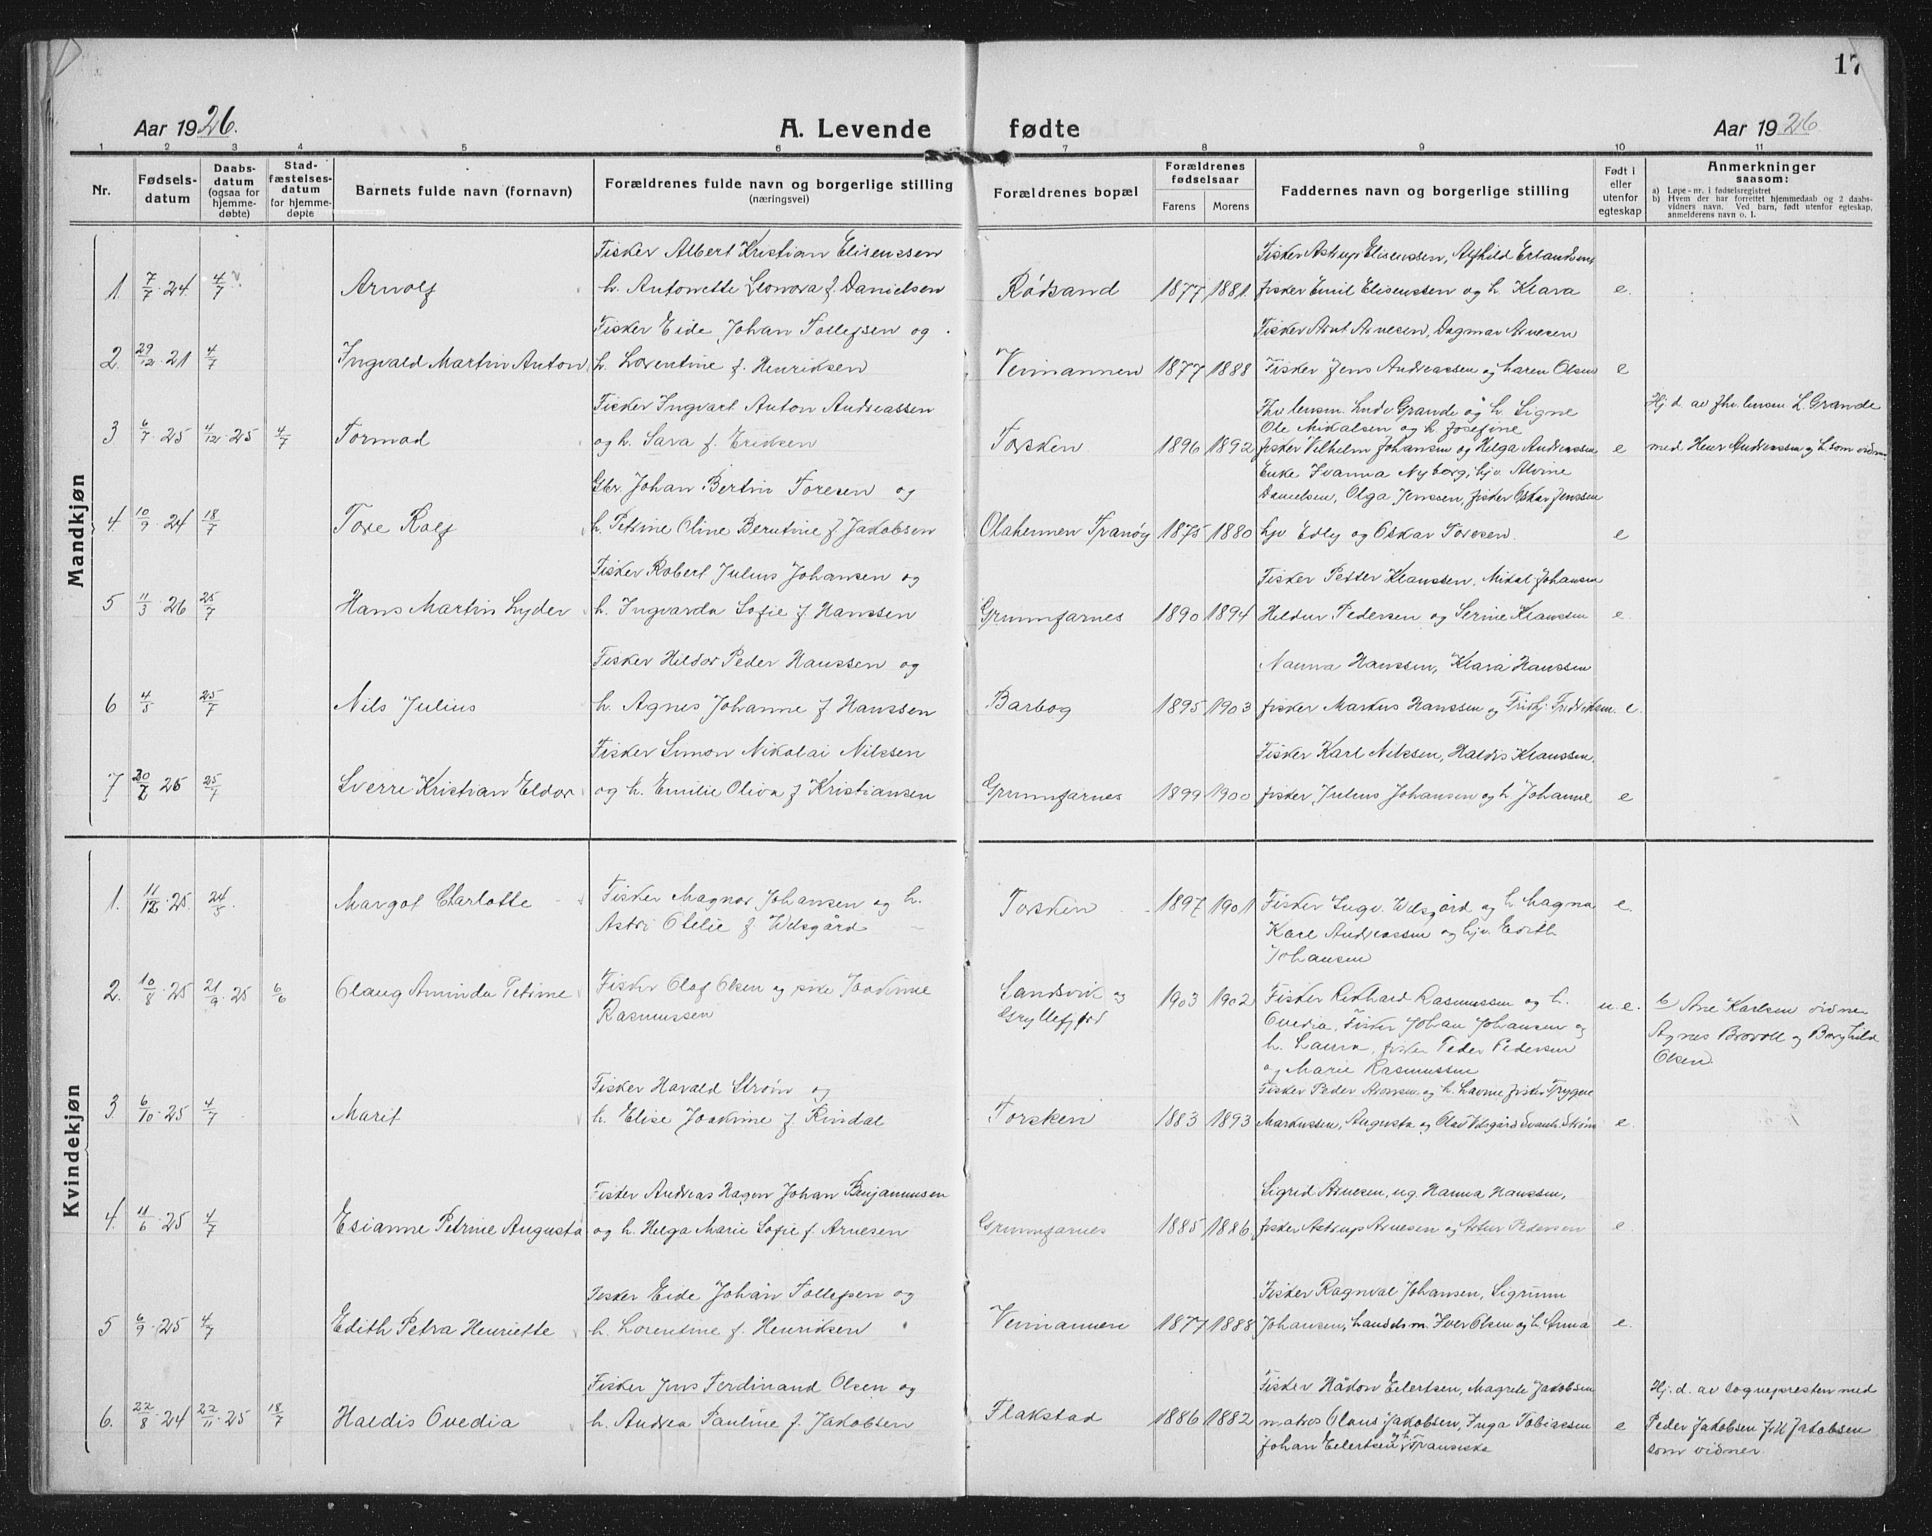 17
Aar 1926.
A. Levende fødte
Aar 1926
1 2 3 4 5 6 7 8 9 10 11
Nr.
Fødsels-
datum
Daabs-
datum
(ogsaa for
hjemme-
døbte)
Stad-
fæstelses-
datum
for hjemme-
døpte
Barnets fulde navn (fornavn)
Forældrenes fulde navn og borgerlige stilling
(næringsvei)
Forældrenes bopæl
Forældrenes
fødselsaar
Farens Morens
Faddernes navn og borgerlige stilling
Født i
eller
utenfor
egteskap
Anmerkninger
saasom:
a) Løpe-nr. i fødselsregistret
b) Hvem der har forrettet hjemmedaab og 2 daabs-
vidners navn. Ved barn, født utenfor egteskap,
anmelderens navn o. l.
Mandkjøn
Fisker Albert Kristian Elisenssen
Fisker Astrup Elisenssen, Alfhild Erlandsen
1 7/7·24 4/7 Arnolf h. Antonette Leonora f. Danielsen Rødsand 1877 1881 fisker Emil Elisenssen og h. Klara e.
Fisker Eide Johan Tollefsen og
Fisker Arnt Arnesen, Dagmar Arnesen
2. 29/12·21 4/7 Ingvald Martin Anton h. Lorentine f. Henriksen Veimannen 1877 1888 Fisker Jens Andreassen og Maren Olsen e
Fisker Ingvart Anton Andreassen
Ludv Grande og h. Signe
Ole Mikalsen og h. Josefine
Hj. d. av L. Grande
3 6/7·25 4/12·25 4/7 Tormod og h. Sara f. Eriksen Torsken 1896 1892 fisker Vilhelm Johansen og Helga Andreassen e med Henr Andreassen og h. som vidner
Enke Ivanna Nyborg, hjv. Alvine
Gbr Johan Bertin Toresen og
Danielsen, Olga Jenssen, fisker Oskar Jenssen
4. 10/9·24 18/7 Tore Rolf h. Petrine Oline Berntine f. Jakobsen Olaheimen Tranøy 1875 1880 hjv Edly og Oskar Toresen. e
Fisker Robert Julius Johansen og
Fisker Petter Klaussen, Mikal Johansen
5 11/3·26 25/7 Hans Martin Lyder h. Ingvarda Sofie f. Hanssen Grunnfarnes 1890 1894 Hildur Pedersen og Serine Klaussen e.
Fisker Hildor Peder Hanssen og
Nanna Hanssen, Klara Hanssen
6 4/5 25/7 Nils Julius h. Agnes Johanne f. Hanssen Barbog 1895 1903 fisker Markus Hanssen og Fritj. Fredriksen. e.
Fisker Simon Nikolai Nilssen
Fisker Karl Nilssen, Haldis Klaussen,
7 25/7 Sverre Kristian Eldor og h. Emilie Oliva f. Kristiansen Grunnfarnes 1899 1900 fisker Julius Johansen og h Johanne e
Kvindekjøn
1. 11/12·25. 24/5. Margot Charlotte Fisker Magnor Johansen og h. Torsken 1897 1901 Fisker Ingv. Velsgård og h. Magna e.
Astri Otelie f. Velsgård
Karl Andreassen og hjv. Edith
Johansen
2. 10/8·25 21/9·25 6/6 Olaug Aminda Petrine Fisker Olaf Olsen og pike Joakimine Sandsvik og 1903 1902 Fisker Rikhard Rasmussen og h. u.e. b) Ane Karlsen vidne
Rasmussen
Gryllefjord
Ovedia, Fisker Johan Johansen og
Agnes Brovoll og Borghild
h. Laura, fisker Peder Pedersen
Olsen
og Marie Rasmussen
Fisker Harald Strøm og
Fisker Peder Aronsen og h. Lavine fisker Tryggve
3 6/10·25 4/7 Marit h. Elise Joakine f. Rindal Torsken 1883 1893 Markussen, Augusta og Olav Velsgård Svanh. Strøm e.
Fisker Andreas Hagen Johan Benjaminsen
Sigrid Arnesen, ug. Hanna Hanssen,
4. 11/6·25 4/7 Esianne Petrine Augusta og h. Helga Marie Sofie f. Arnesen Grunnfarnes 1885 1886 fisker Astrup Arnesen og Artur Pedersen e.
Fisker Eide Johan Tollefsen og
Fisker Ragnval Johansen, Sigrunn
5 6/9·25 4/7 Edith Petra Henriette h. Lorentine f. Henriksen Veimannen 1877 1888 Johansen, Landsm. Iver Olsen og h. Anna e.
Fisker Jens Ferdinand Olsen og
Fisker Hådon Eilertsen, Magrete Jakobsen
Hj. d. av sognepresten med
6. 22/8·24 22/11·25 18/7 Haldis Ovedia h. Andrea Pauline f. Jakobsen Flakstad 1886 1882 matros Olaus Jakobsen, Inga Tobiassen e Peder Jakobsen Jakobsen
Johan Eilertsen og h Fransiske
som vidner.